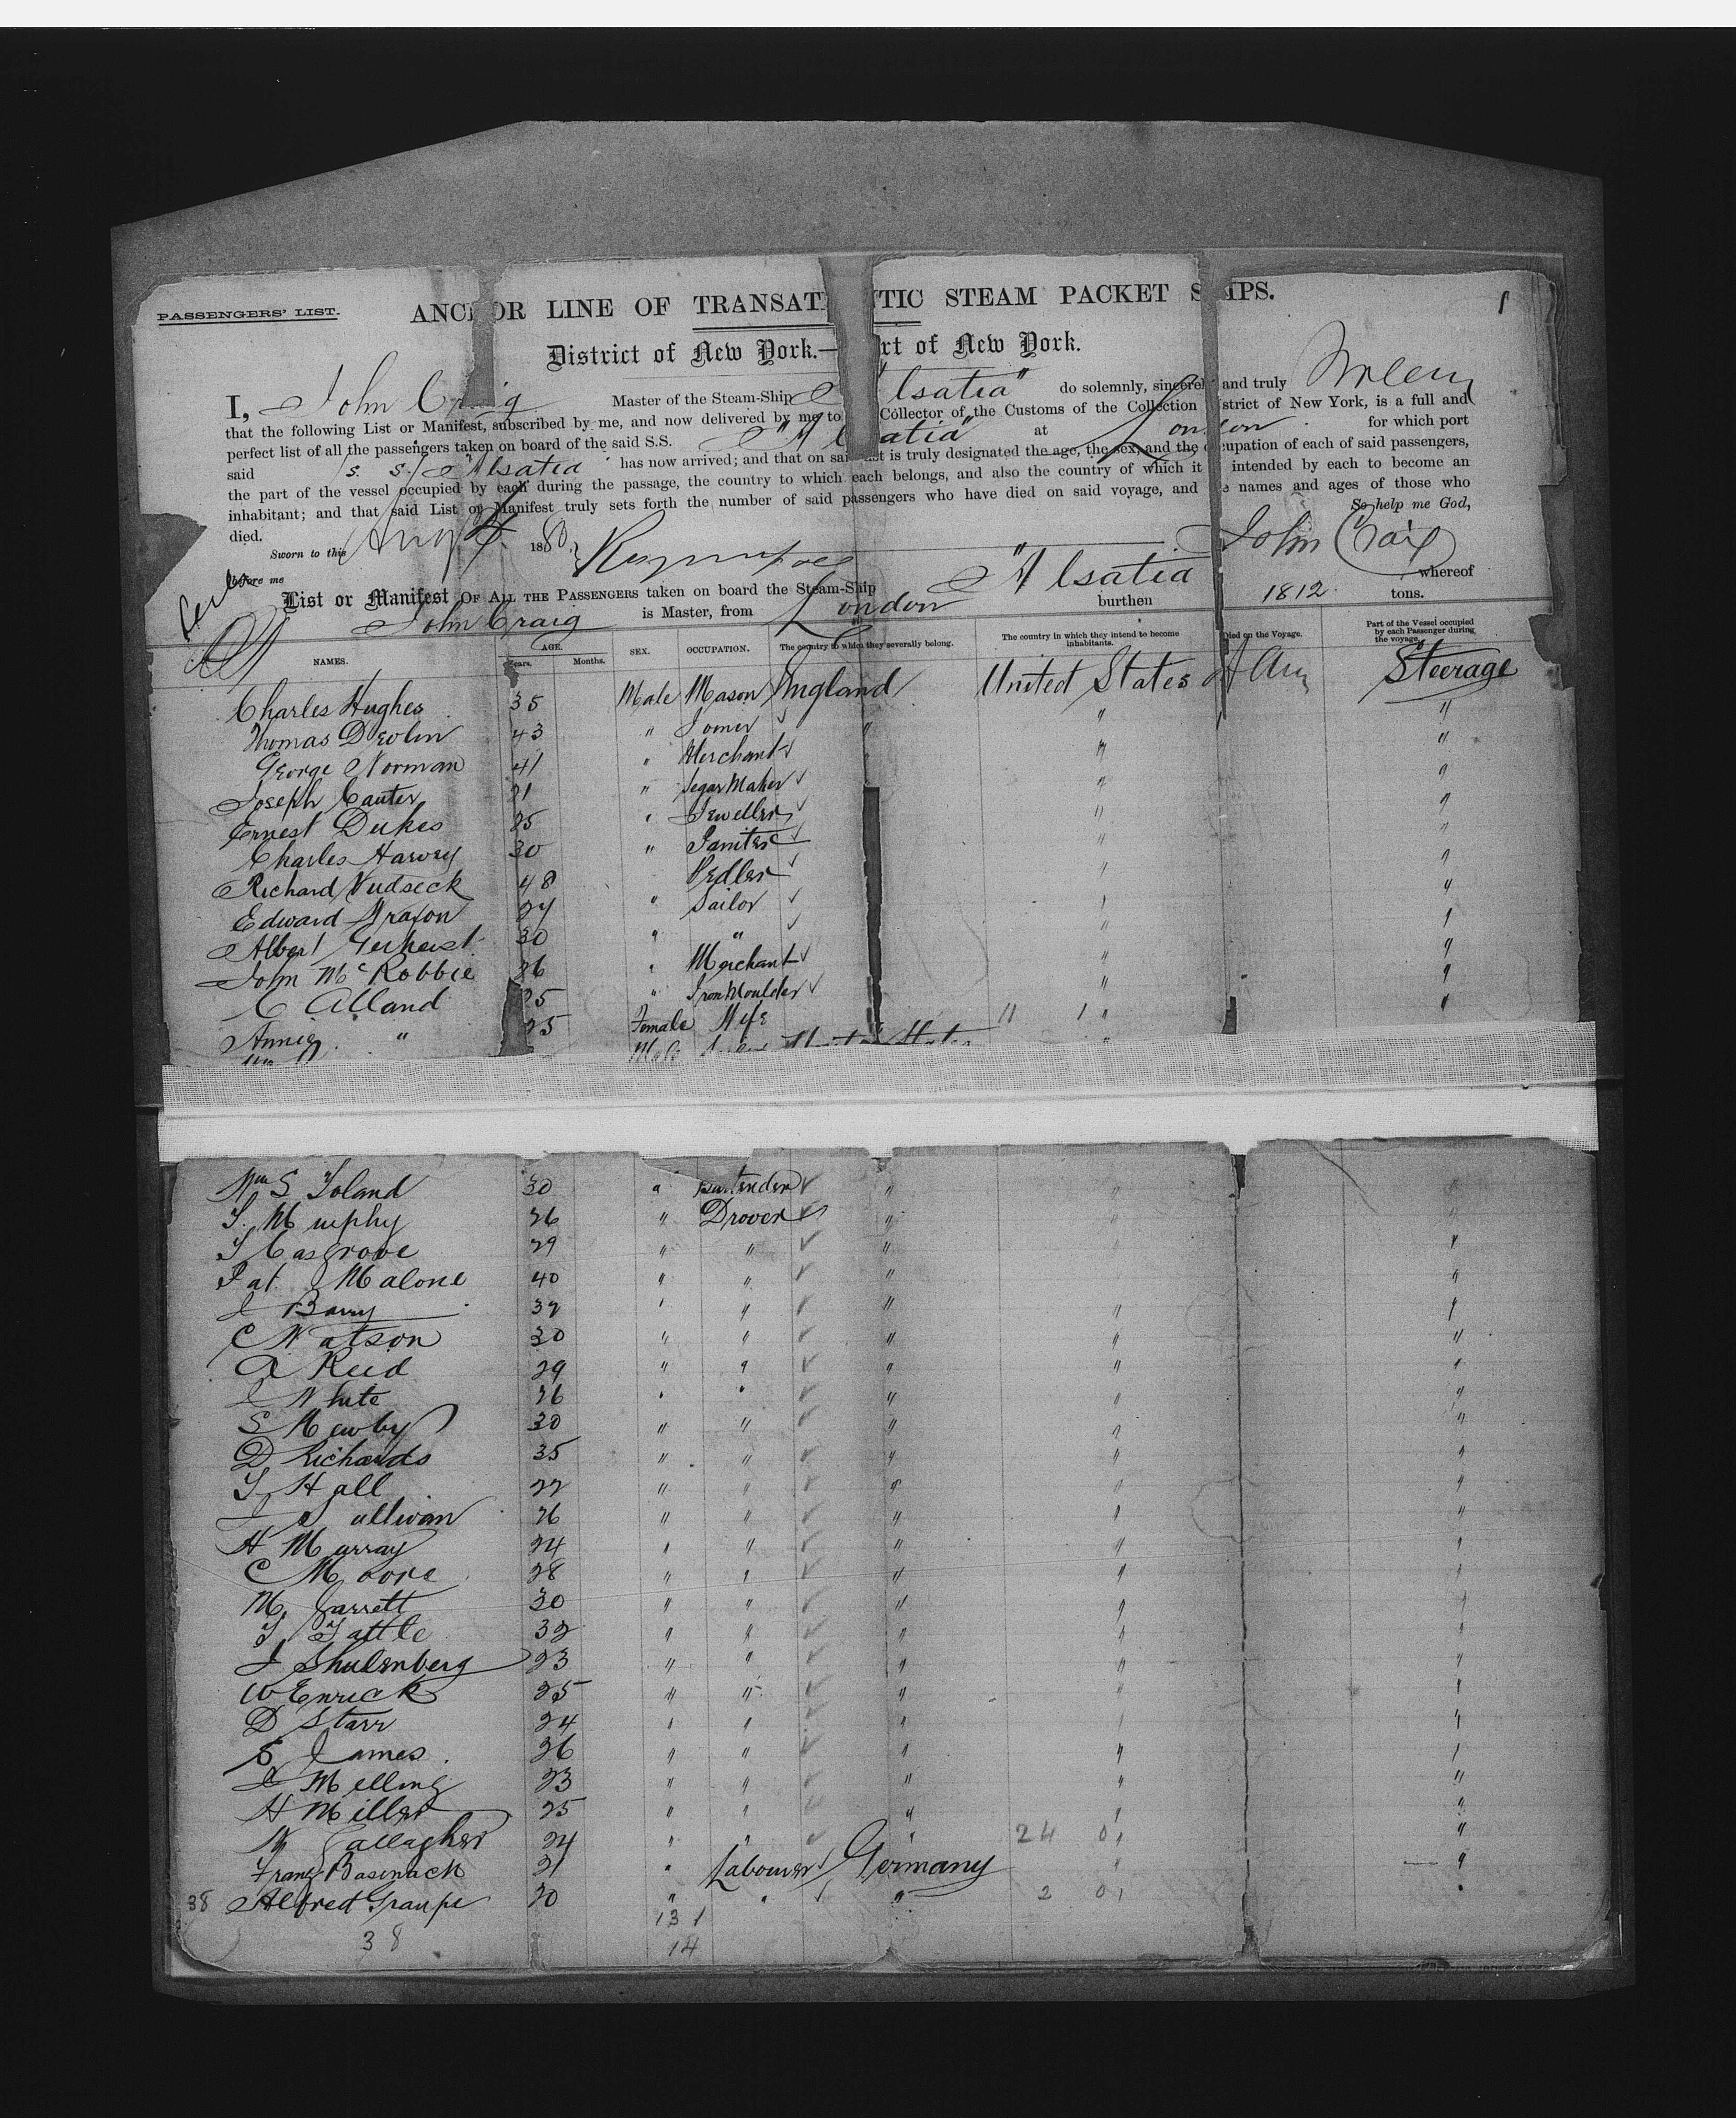 PASSENGERS' LIST.
ANCHOR LINE OF TRANSATLANTIC STEAM PACKET SHIPS.
1
District of New York.— Port of New York.
I, John Craig Master of the Steam-Ship "Alsatia" do solemnly, sincerely and truly
that the following List or Manifest, subscribed by me, and now delivered by me to Collector of the Customs of the Collection District of New York, is a full and
perfect list of all the passengers taken on board of the said S.S. "Alsatia" at London for which port
said s. s. "Alsatia" has now arrived; and that on said list is truly designated the age, the sex, and the occupation of each of said passengers,
the part of the vessel occupied by each during the passage, the country to which each belongs, and also the country of which it intended by each to become an
inhabitant; and that said List or Manifest truly sets forth the number of said passengers who have died on said voyage, and names and ages of those who
died. So help me God,
Sworn to this Aug 4 1880. John Craig
before me
List or Manifest OF ALL THE PASSENGERS taken on board the Steam-Ship "Alsatia whereof
John Craig is Master, from London burthen 1812 tons.
NAMES. AGE. Years. Months. SEX. OCCUPATION. The country to which they severally belong. The country in which they intend to become inhabitants. Died on the Voyage. Part of the Vessel occupied by each Passenger during the voyage.
Charles Hughes 35 Male Mason England United States Steerage
Thomas Devlin 43 " Joiner " " "
George Norman 41 " Merchant " "
Joseph Cauter 21 " Segar Maker " "
Ernest Dukes 25 " Jeweller " "
Charles Harvey 30 " Janiter " "
Richard 48 Pedler " "
Edward 24 " Sailor " "
Albert 30 " " " "
John McRobbie 26 " Merchant " "
C Alland 25 " Iron Moulder " "
Annie " 25 Female Wife 11 1 " "
Male
Wm S Toland 30 " Bartender " " "
T. Murphy 26 " Drover " " "
T Casgrove 29 " " " "
Pat Malone 40 " " " "
J Barry 32 " " " " "
C Watson 30 " " " " "
A Reid 29 " " " " "
J White 26 " " " " "
S Mewby 30 " " " " "
D Richards 35 " " " " "
T Hall 22 " " " " "
J Sullivan 26 " " " " "
H Murray 24 " " " " "
C Moore 28 " " " " "
M. Jarrett 30 " " " " "
T Tattle 32 " " " " "
J Shulenberg 23 " " " " "
W Enrick 25 " " " " "
D Starr 24 " " " " "
S James 26 " " " " "
J Melling 23 " " " " "
H Miller 25 " " " " "
Gallagher 24 " " " 24 0 " "
Franz Basenack 21 " Labourer Germany " "
38 Alfred Graupe 20 " " " 2 0 " "
13 1
38 14